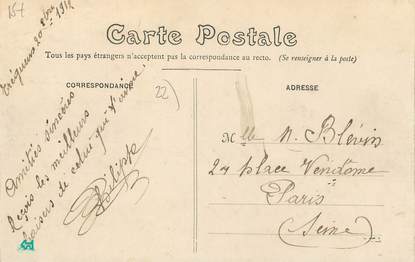 15f
Carte Postale
Tous les pays étrangers n'acceptent pas la correspondance au recto. (Se renseigner à la poste)
CORRESPONDANCE
ADRESSE
22)
1912
Amitiés sincères
Reçois les meilleurs
baisers de celui qui t'aime.
Philippe
Mlle M. Blévin
24 place Vendôme
Paris
(Seine)